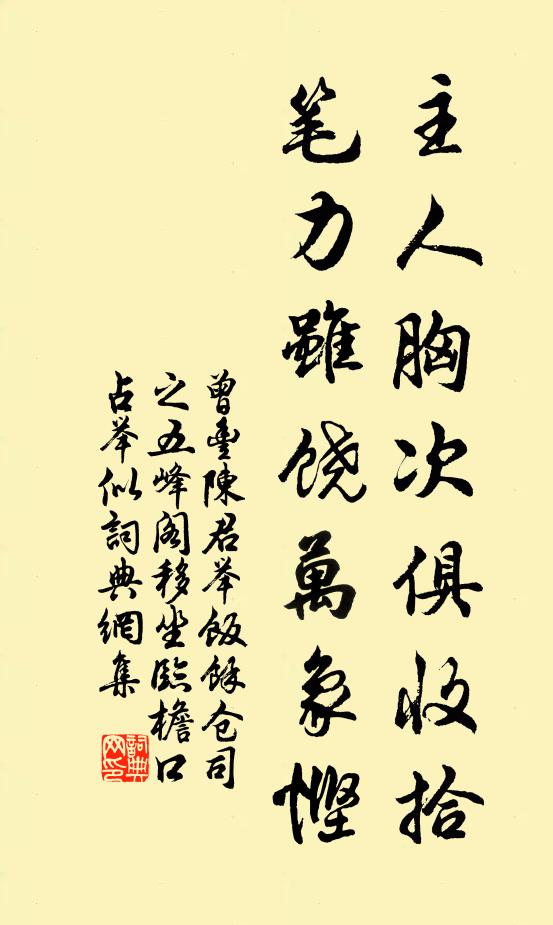 主人胸次俱收拾
笔力雖饶萬象慳
曾豊陳君举飯餘仓司
之五峰阁移坐臨檐口
占举似詞典網集
詞典网印